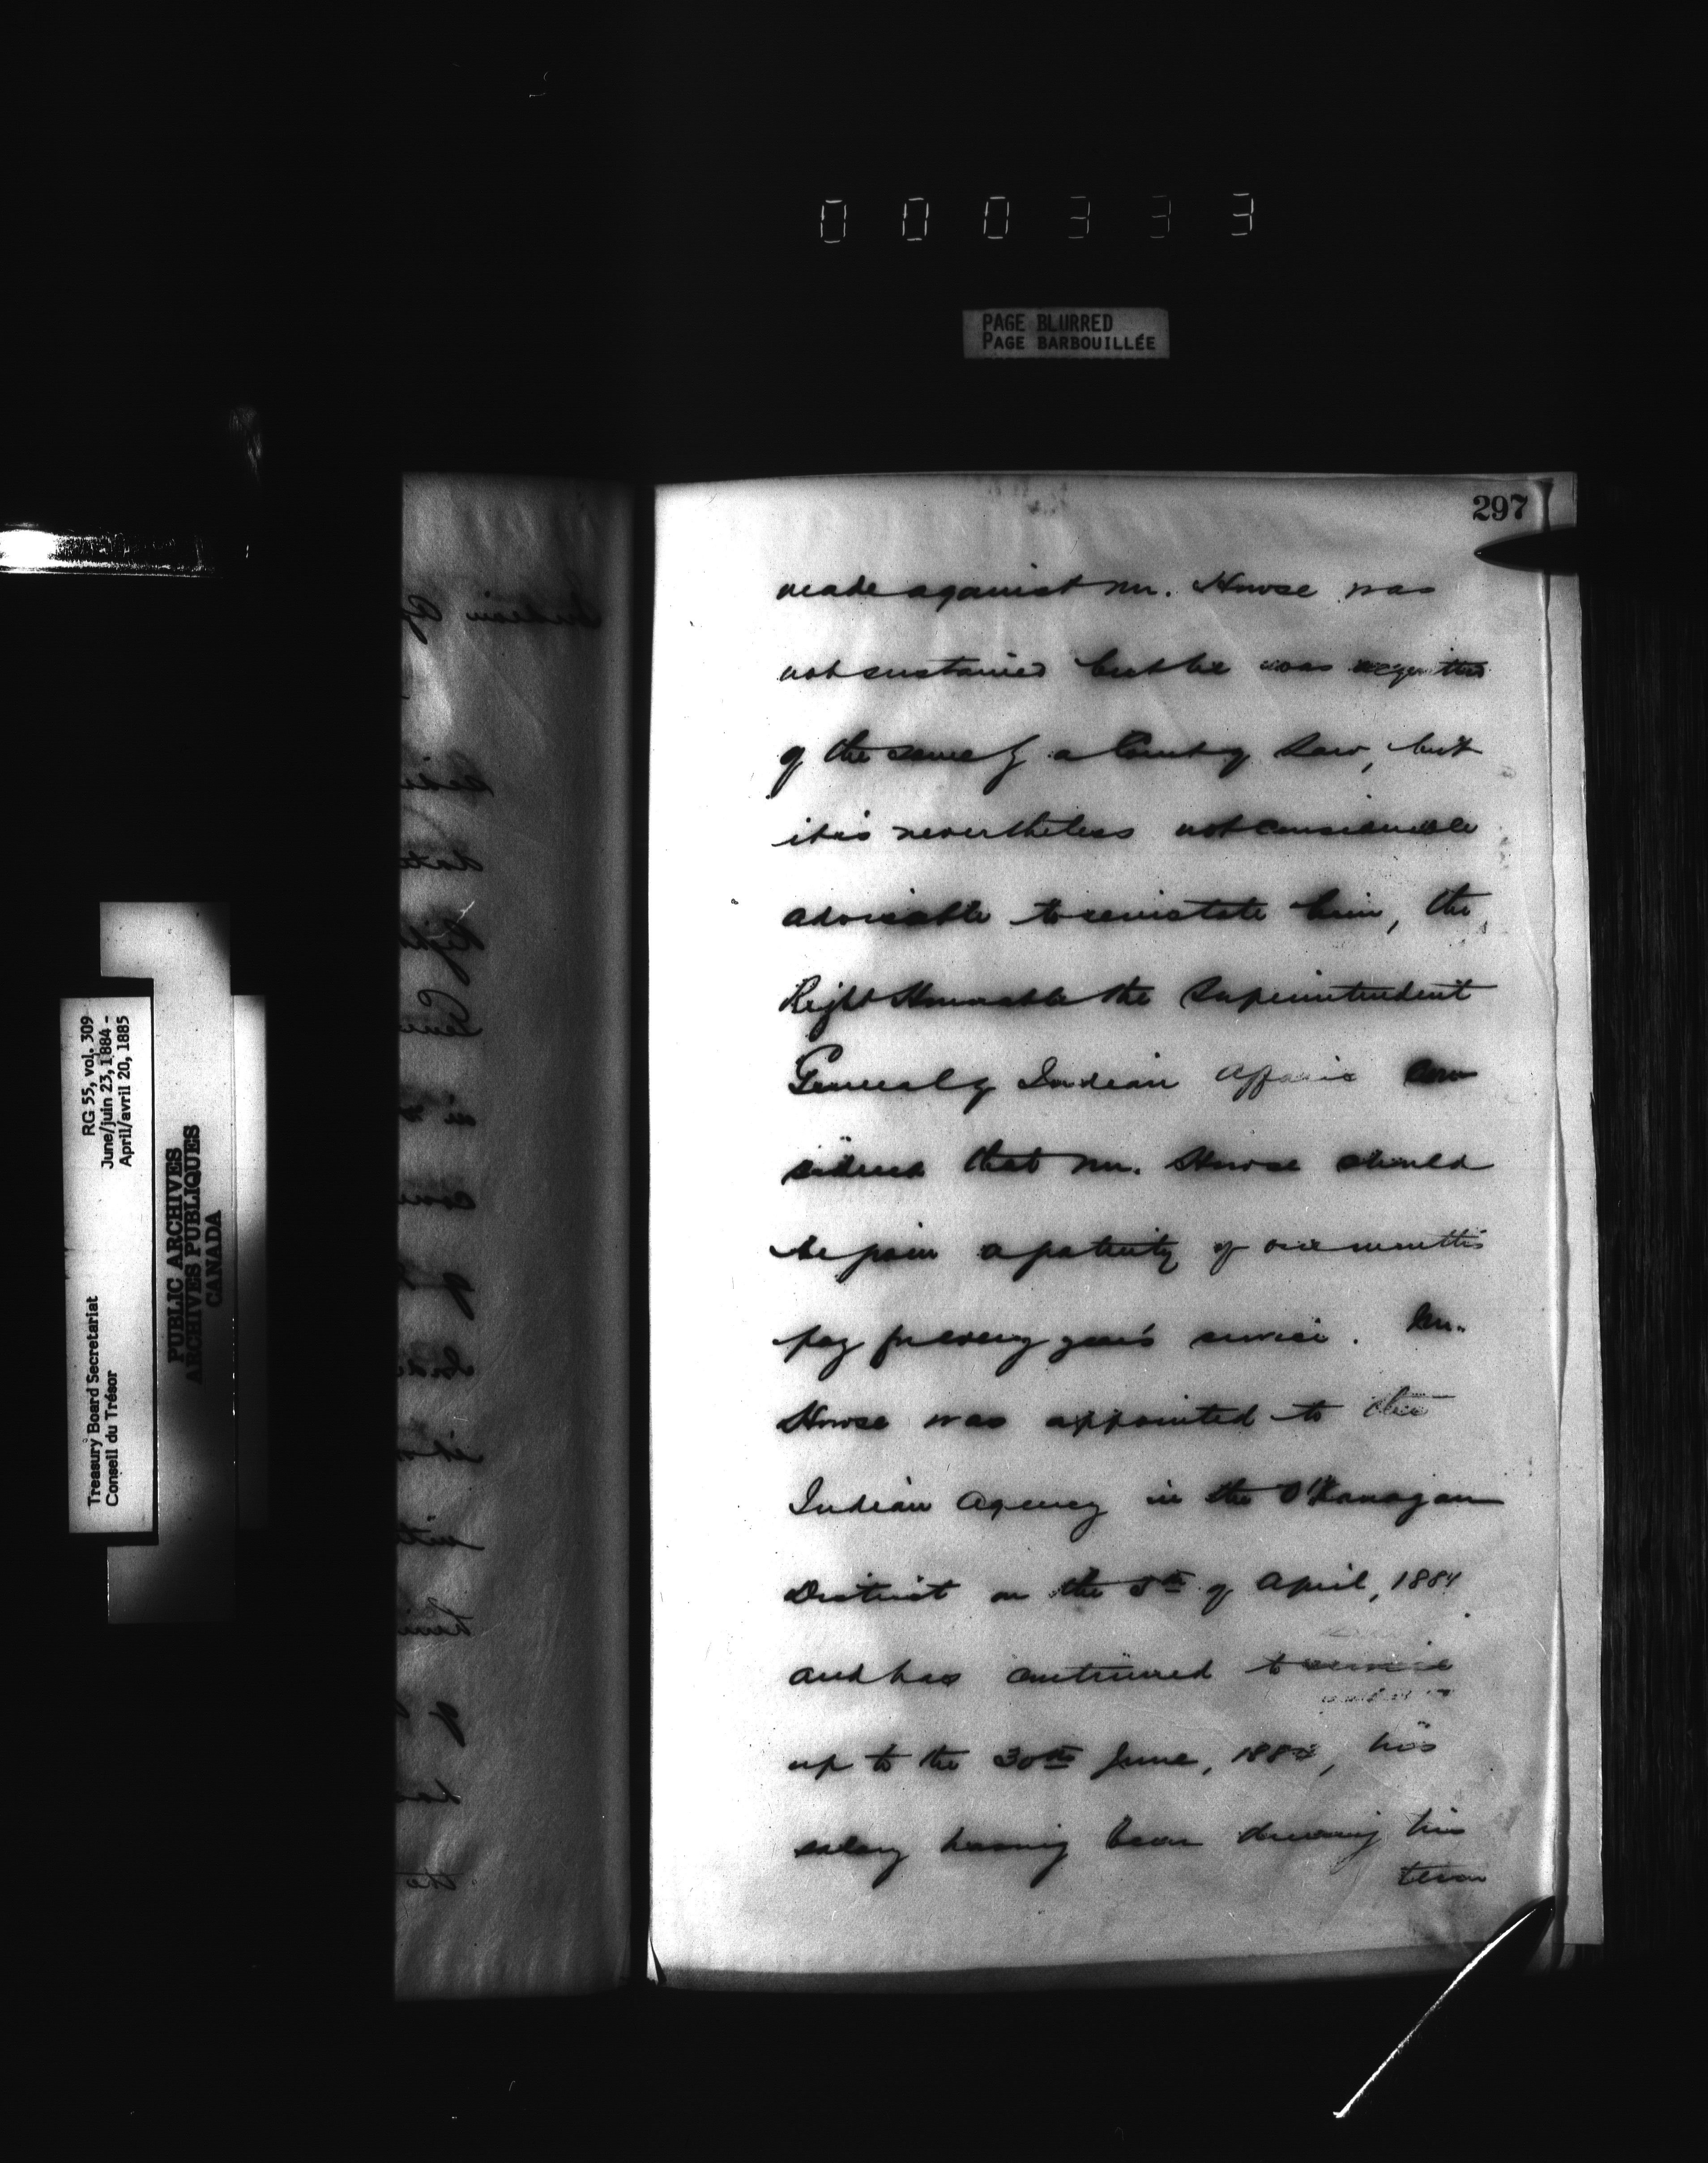 000333
PAGE BLURRED
PAGE BARBOUILLÉE
297
made against Mr. Howse was
not sustained but he was acquitted
of the same by a Court of Law, but
it is nevertheless not considered
advisable to reinstate him, the
Right Honorable the Superintendent
General of Indian Affairs con
sidered that Mr. Howse should
be paid a gratuity of one month's
pay for every year's service. Mr.
Howse was appointed to the
Indian Agency in the O'Kanagan
District on the 5th of April, 1881
and has continued to
up to the 30th June, 188 , his
salary having been during his
RG 55, vol. 309
June/juin 23, 1884 -
April/avril 20, 1885
Treasury Board Secretariat
Conseil du Trésor
PUBLIC ARCHIVES
ARCHIVES PUBLIQUES
CANADA